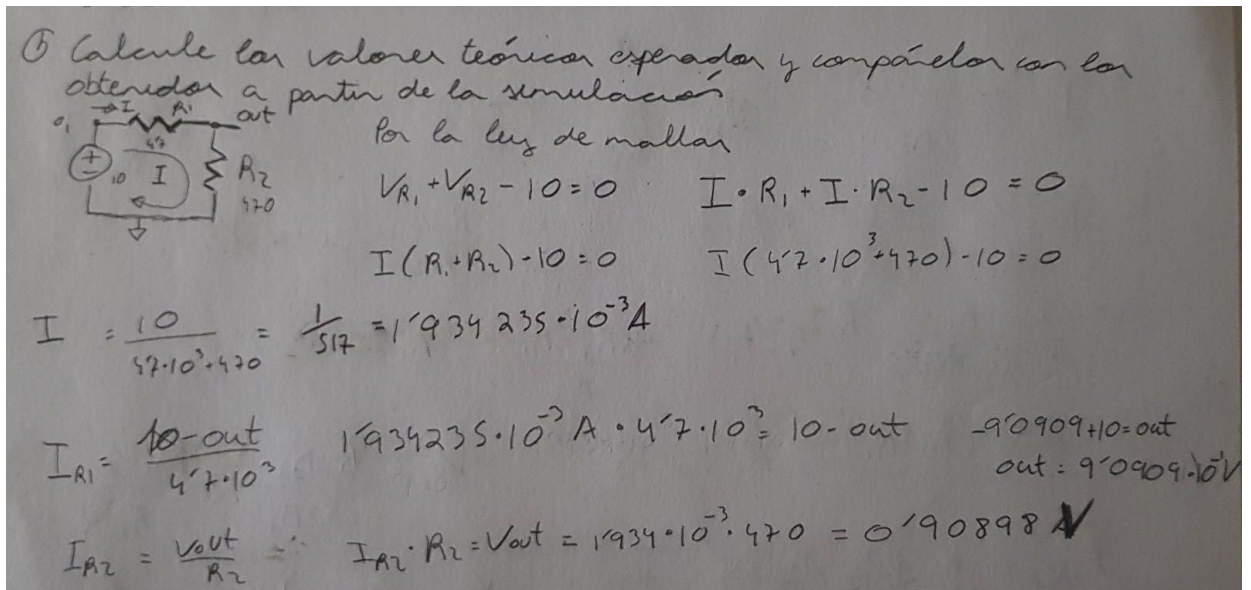 ① Calcule los valores teóricos esperados y compárelos con los
obtenidos a partir de la simulación
I R1 out
4'7
+ − 10 I R2
470
Por la ley de mallas
V_R1 + V_R2 - 10 = 0 I · R1 + I · R2 - 10 = 0
I (R1 + R2) - 10 = 0 I (4'7 · 10³ + 470) - 10 = 0
I = 10 / (4'7 · 10³ + 470) = 1/517 = 1'934235 · 10⁻³ A
I_R1 = (10 - out) / (4'7 · 10³) 1'934235 · 10⁻³ A · 4'7 · 10³ = 10 - out -9'0909 + 10 = out
out = 9'0909 · 10⁻¹ V
I_R2 = Vout / R2 I_R2 · R2 = Vout = 1'934 · 10⁻³ · 470 = 0'90898 V